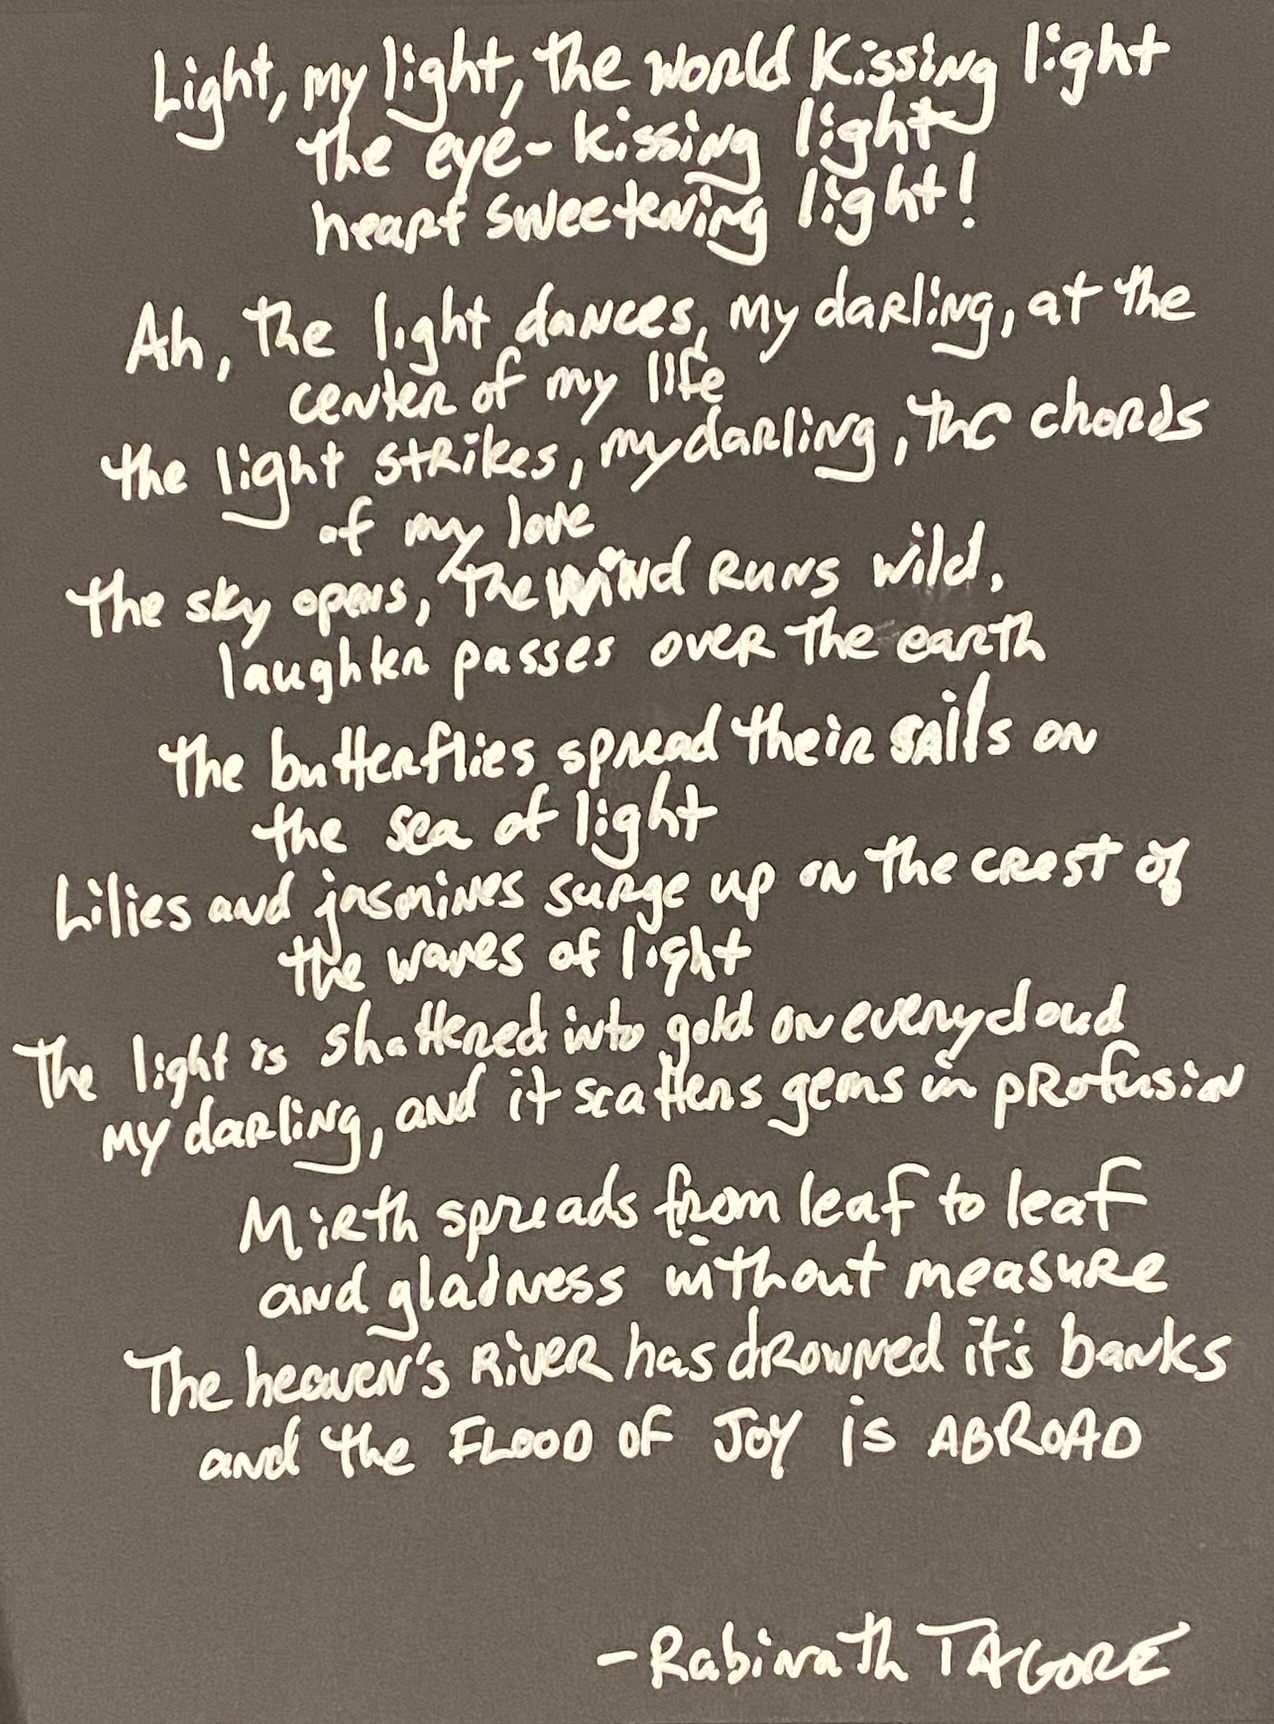 Light, my light, the world kissing light
the eye-kissing light
heart sweetening light!
Ah, the light dances, my darling, at the
center of my life
the light strikes, my darling, the chords
of my love
the sky opens, the wind runs wild,
laughter passes over the earth
the butterflies spread their sails on
the sea of light
Lilies and jasmines surge up on the crest of
the waves of light
The light is shattered into gold on every cloud
my darling, and it scatters gems in profusion
Mirth spreads from leaf to leaf
and gladness without measure
The heaven's river has drowned it's banks
and the FLOOD OF JOY is ABROAD
-Rabinath TAGORE